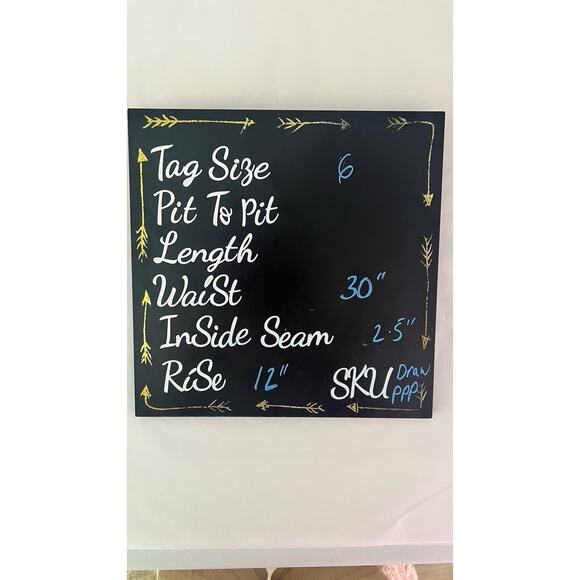 Tag Size 6
Pit To Pit
Length
Waist 30"
InSide Seam 2.5"
RiSe 12" SKU Draw
PPP